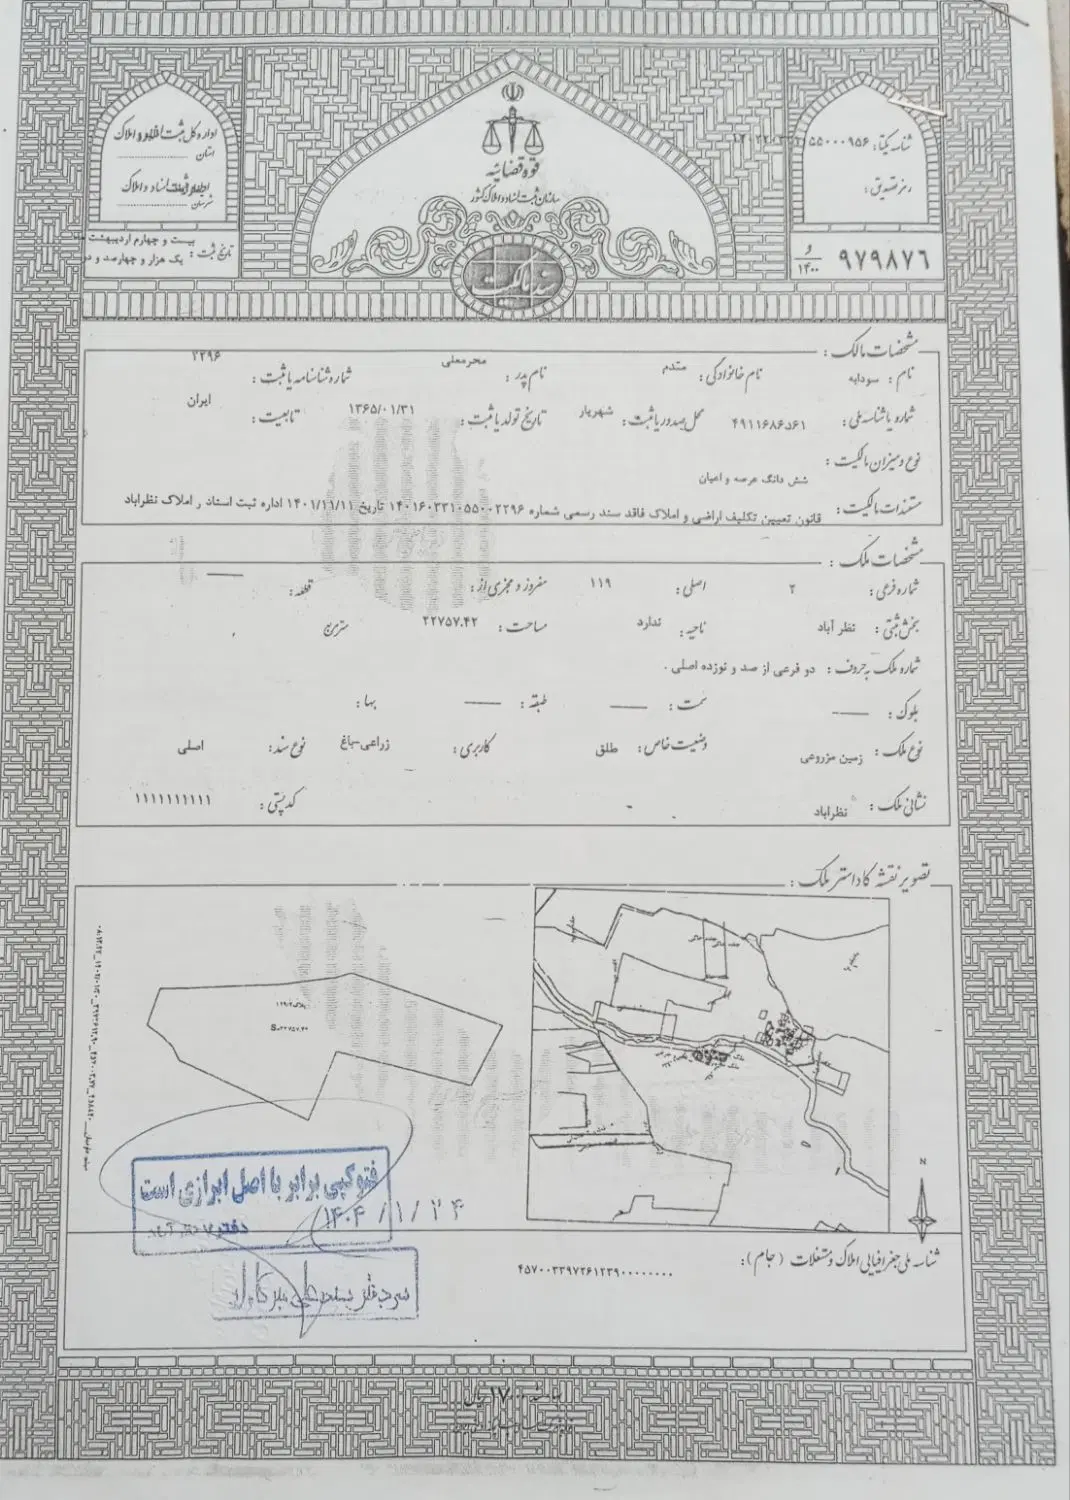 قوه قضائیه
سازمان ثبت اسناد و املاک کشور
سند مالکیت
اداره کل ثبت اسناد و املاک
استان
اسناد و املاک
شهرستان
تاریخ ثبت: بیست و چهارم اردیبهشت
یک هزار و چهارصد و دو
شناسه یکتا:
رمز تصدیق:
۹۷۹۸۷۶ و ۱۴۰۰
مشخصات مالک:
نام: سودابه نام خانوادگی: مقدم نام پدر: محرمعلی شماره شناسنامه یا ثبت: ۲۲۹۶
شماره یا شناسه ملی: ۴۹۱۱۶۸۶۵۶۱ محل صدور یا ثبت: شهریار تاریخ تولد یا ثبت: ۱۳۶۵/۰۱/۳۱ تابعیت: ایران
نوع و میزان مالکیت:
شش دانگ عرصه و اعیان
مستندات مالکیت: قانون تعیین تکلیف اراضی و املاک فاقد سند رسمی شماره ۱۴۰۱۶۰۳۳۱۰۵۵۰۰۲۲۹۶ تاریخ ۱۴۰۱/۱۱/۱۱ اداره ثبت اسناد و املاک نظراباد
مشخصات ملک:
شماره فرعی: ۲ اصلی: ۱۱۹ مفروز و مجزی از: قطعه:
بخش ثبتی: نظر آباد ناحیه: ندارد مساحت: ۲۲۷۵۷.۴۲ مترمربع
شماره ملک به حروف: دو فرعی از صد و نوزده اصلی .
بلوک: سمت: طبقه: بها:
نوع ملک: زمین مزروعی وضعیت خاص: طلق کاربری: زراعی-باغ نوع سند: اصلی
نشانی ملک: نظراباد کدپستی: ۱۱۱۱۱۱۱۱۱۱
تصویر نقشه کاداستر ملک:
N
فتوکپی برابر با اصل ابرازی است
۱۴۰۴/۱/۲۴
شناسه ملی جغرافیایی املاک و مستغلات (جام):
۴۵۷۰۰۳۳۹۷۲۶۱۲۳۹۰۰۰۰۰۰۰۰